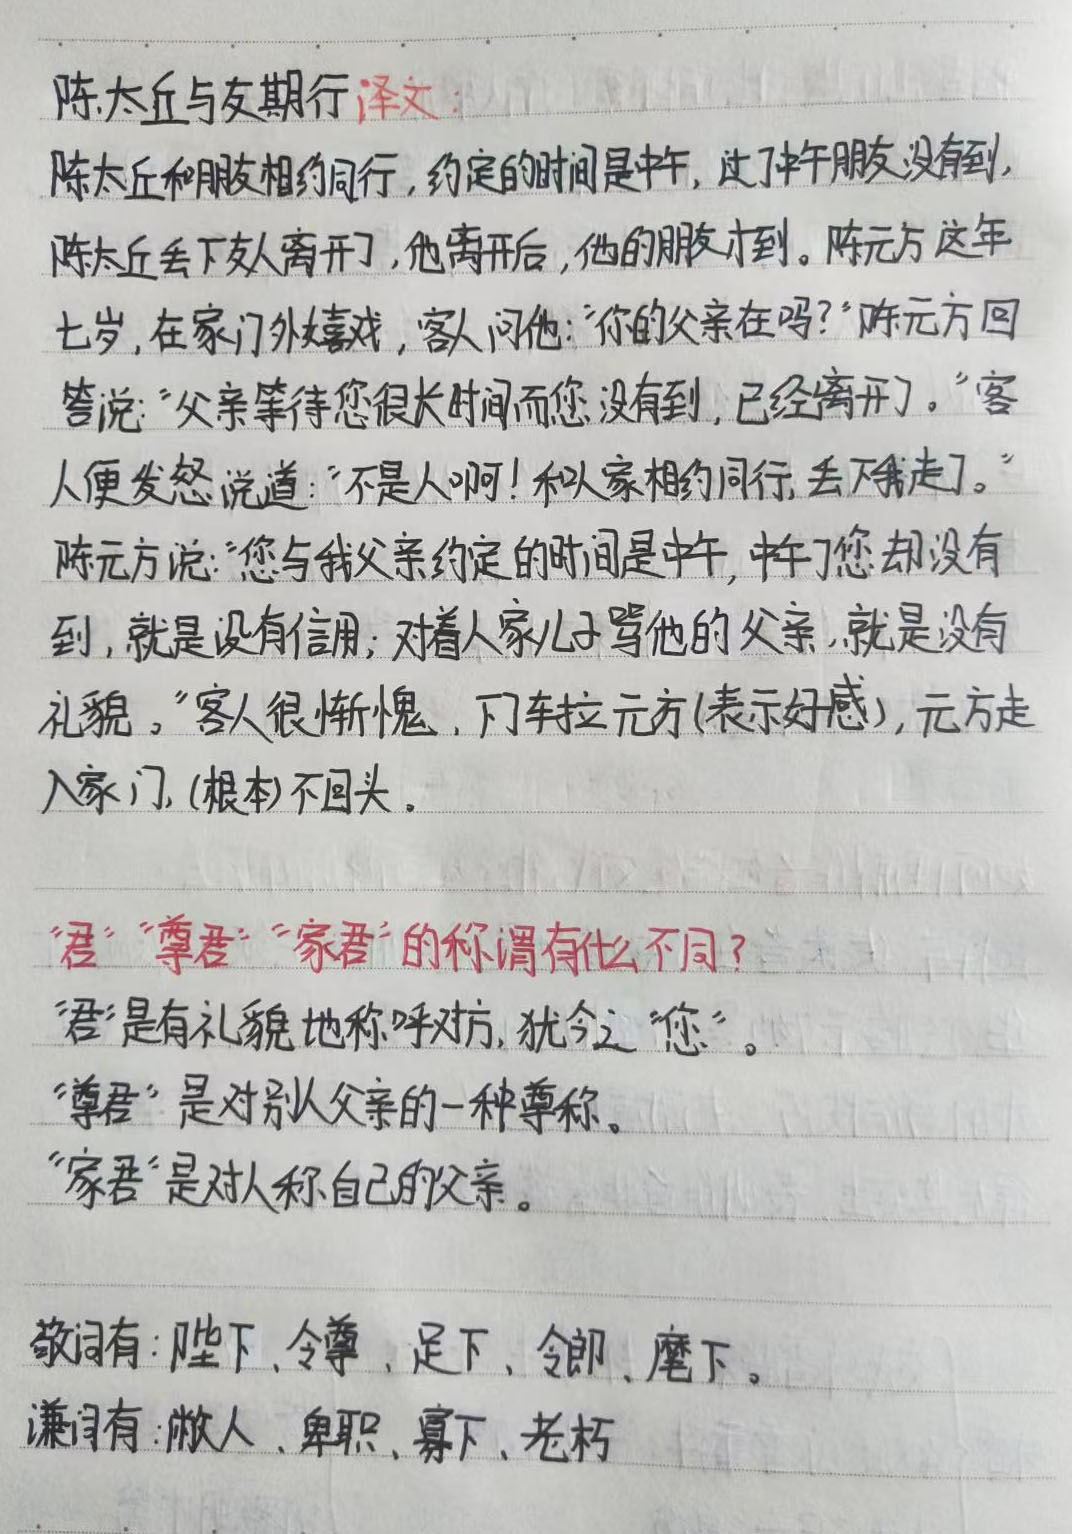 陈太丘与友期行译文：
陈太丘和朋友相约同行，约定的时间是中午，过了中午朋友没有到，
陈太丘丢下友人离开了，他离开后，他的朋友才到。陈元方这年
七岁，在家门外嬉戏，客人问他：“你的父亲在吗？”陈元方回
答说：“父亲等待您很长时间而您没有到，已经离开了。”客
人便发怒说道：“不是人啊！和人家相约同行，丢下我走了。”
陈元方说：“您与我父亲约定的时间是中午，中午了您却没有
到，就是没有信用；对着人家儿子骂他的父亲，就是没有
礼貌。”客人很惭愧，下车拉元方（表示好感），元方走
入家门，（根本）不回头。
“君”“尊君”“家君”的称谓有什么不同？
“君”是有礼貌地称呼对方，犹今之“您”。
“尊君”是对别人父亲的一种尊称。
“家君”是对人称自己的父亲。
敬词有：陛下、令尊、足下、令郎、麾下。
谦词有：敝人、卑职、寡下、老朽